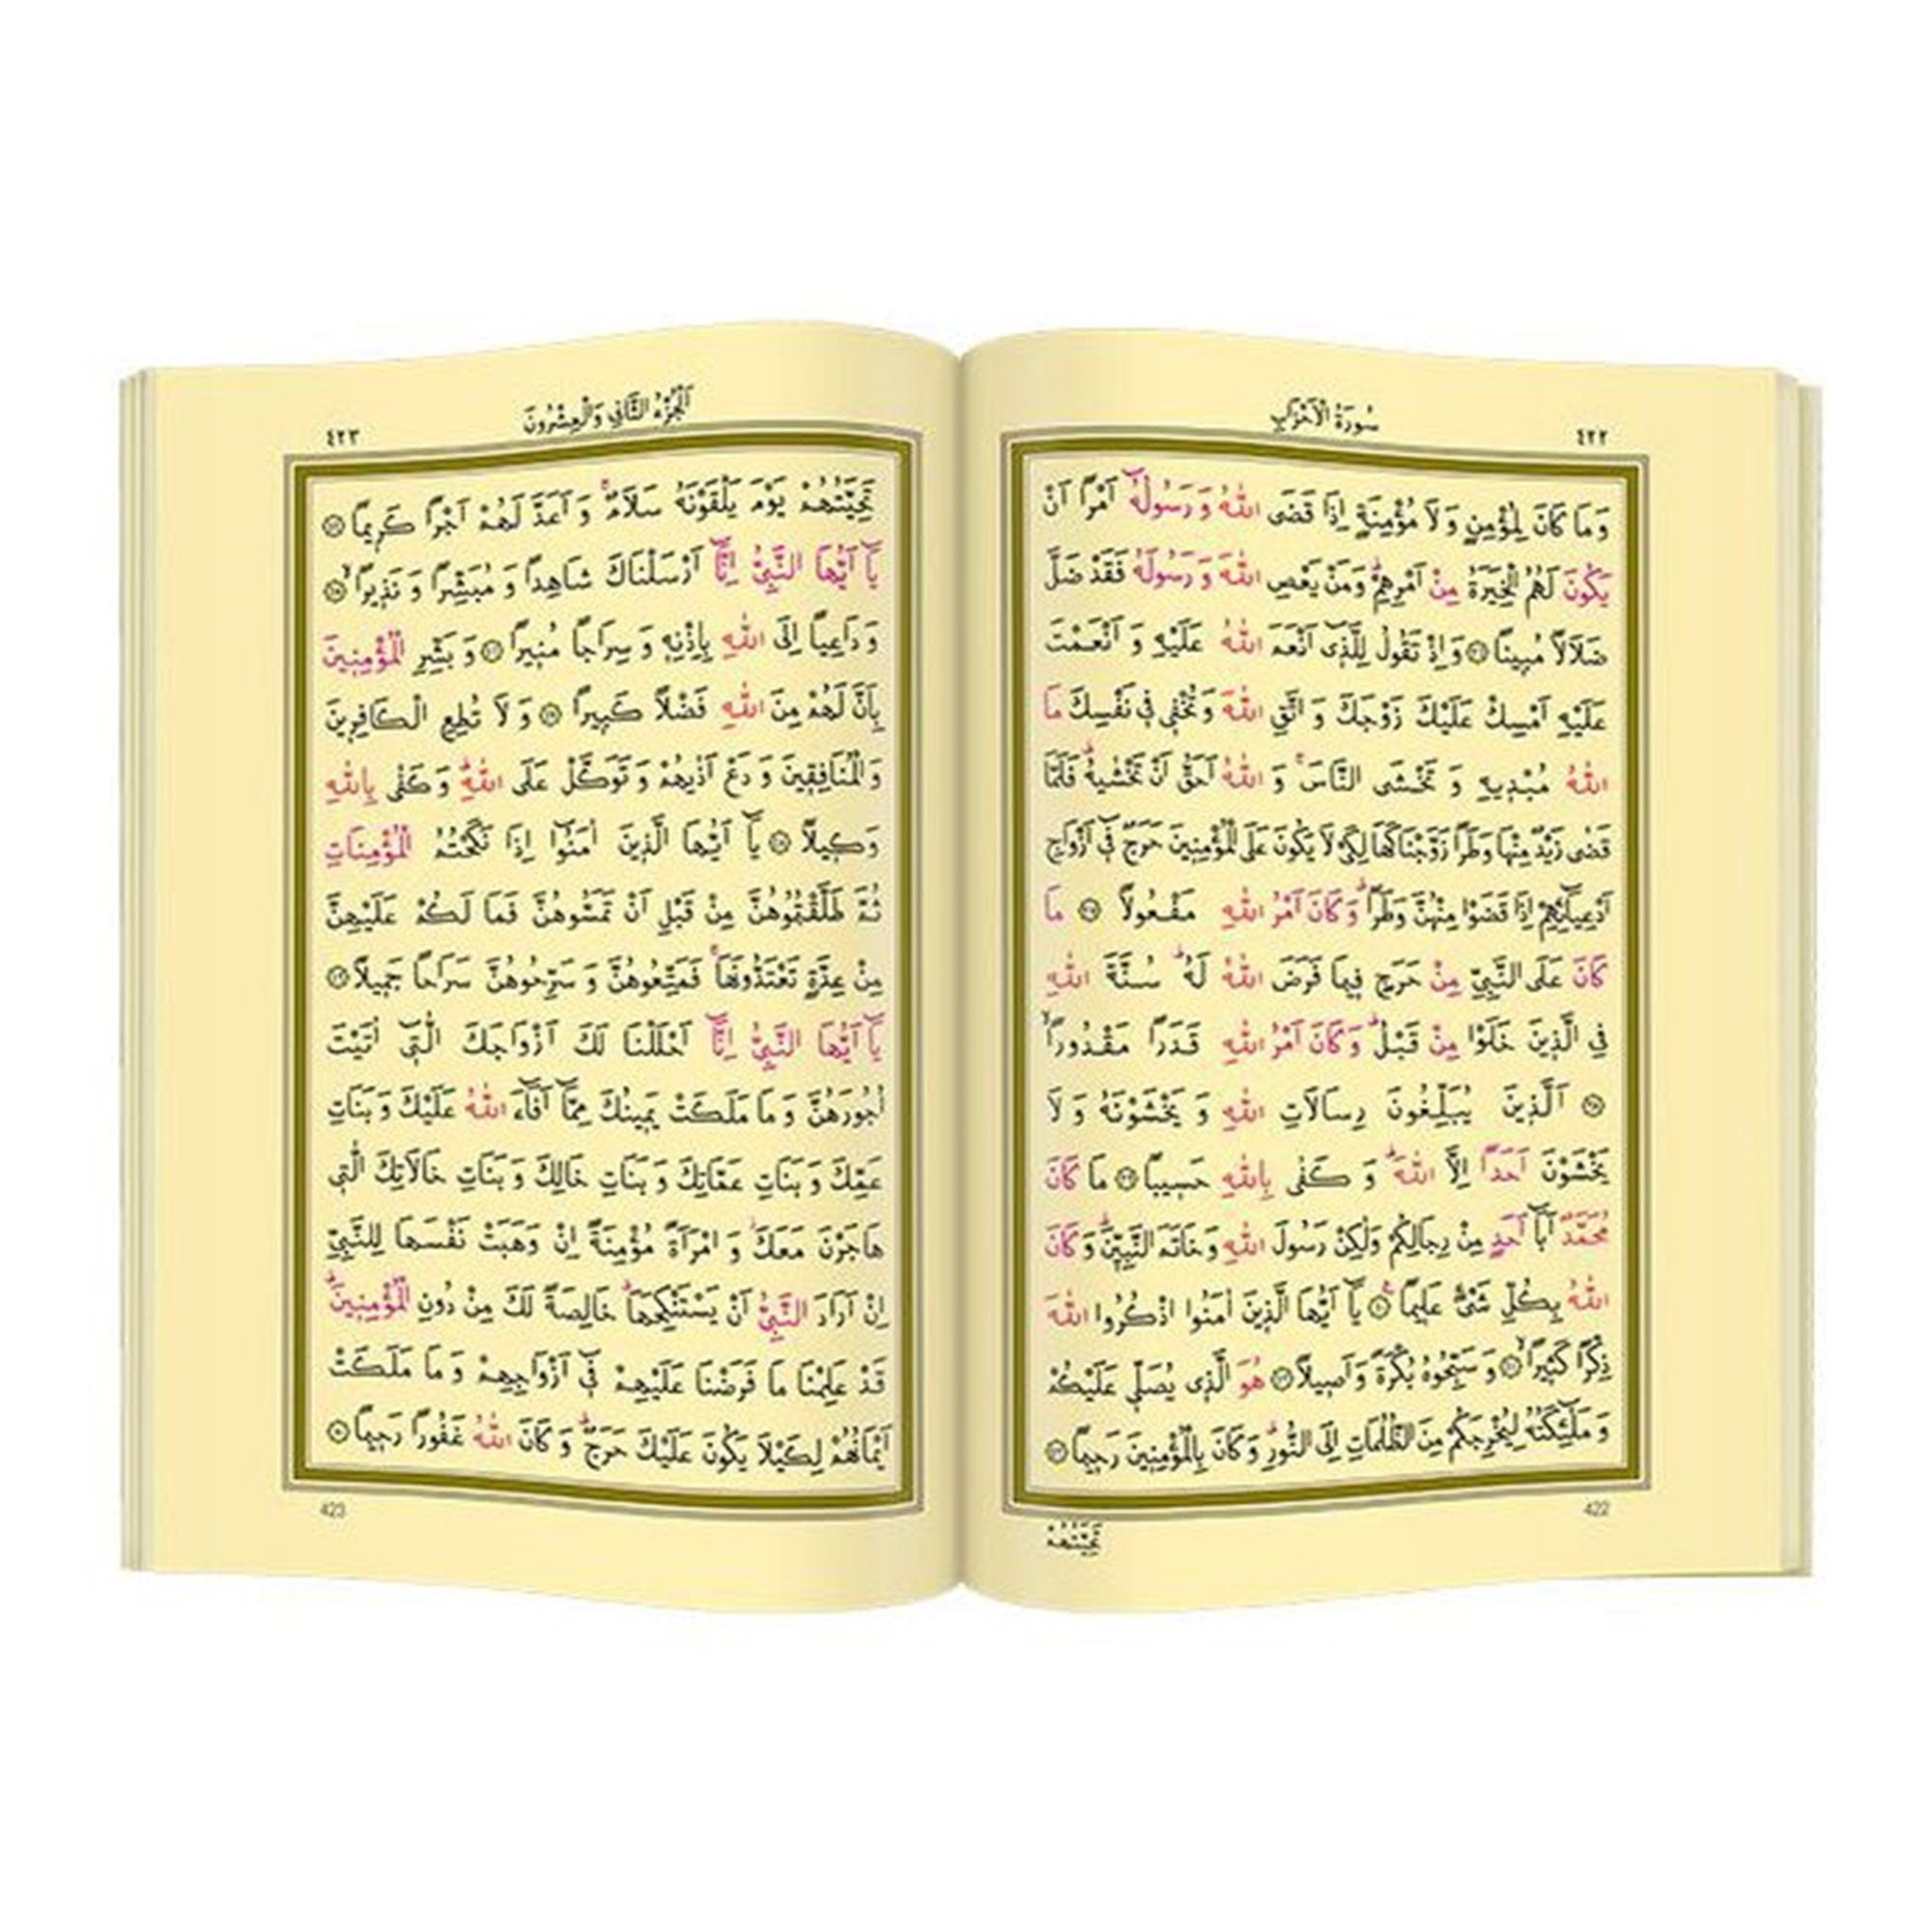 سُورَةُ الْاَحْزَابِ
٤٢٢
وَمَا كَانَ لِمُؤْمِنٍ وَلَا مُؤْمِنَةٍ اِذَا قَضَى اللّٰهُ وَرَسُولُهُٓ اَمْراً اَنْ
يَكُونَ لَهُمُ الْخِيَرَةُ مِنْ اَمْرِهِمْۜ وَمَنْ يَعْصِ اللّٰهَ وَرَسُولَهُ فَقَدْ ضَلَّ
ضَلَالاً مُبِيناً ﴿٣٦﴾ وَاِذْ تَقُولُ لِلَّذِٓي اَنْعَمَ اللّٰهُ عَلَيْهِ وَاَنْعَمْتَ
عَلَيْهِ اَمْسِكْ عَلَيْكَ زَوْجَكَ وَاتَّقِ اللّٰهَ وَتُخْفِي فِي نَفْسِكَ مَا
اللّٰهُ مُبْدِيهِ وَتَخْشَى النَّاسَۚ وَاللّٰهُ اَحَقُّ اَنْ تَخْشٰيهُۜ فَلَمَّا
قَضٰى زَيْدٌ مِنْهَا وَطَراً زَوَّجْنَاكَهَا لِكَيْ لَا يَكُونَ عَلَى الْمُؤْمِنِينَ حَرَجٌ فِٓي اَزْوَاجِ
اَدْعِيَٓائِهِمْ اِذَا قَضَوْا مِنْهُنَّ وَطَراًۜ وَكَانَ اَمْرُ اللّٰهِ مَفْعُولاً ﴿٣٧﴾ مَا
كَانَ عَلَى النَّبِيِّ مِنْ حَرَجٍ فِيمَا فَرَضَ اللّٰهُ لَهُۜ سُنَّةَ اللّٰهِ
فِي الَّذِينَ خَلَوْا مِنْ قَبْلُۜ وَكَانَ اَمْرُ اللّٰهِ قَدَراً مَقْدُوراًۙ
﴿٣٨﴾ اَلَّذِينَ يُبَلِّغُونَ رِسَالَاتِ اللّٰهِ وَيَخْشَوْنَهُ وَلَا
يَخْشَوْنَ اَحَداً اِلَّا اللّٰهَۜ وَكَفٰى بِاللّٰهِ حَسِيباً ﴿٣٩﴾ مَا كَانَ
مُحَمَّدٌ اَبَٓا اَحَدٍ مِنْ رِجَالِكُمْ وَلٰكِنْ رَسُولَ اللّٰهِ وَخَاتَمَ النَّبِيّٖنَۜ وَكَانَ
اللّٰهُ بِكُلِّ شَيْءٍ عَلِيماً۟ ﴿٤٠﴾ يَٓا اَيُّهَا الَّذِينَ اٰمَنُوا اذْكُرُوا اللّٰهَ
ذِكْراً كَثِيراًۙ ﴿٤١﴾ وَسَبِّحُوهُ بُكْرَةً وَاَصِيلاً ﴿٤٢﴾ هُوَ الَّذِي يُصَلِّي عَلَيْكُمْ
وَمَلٰٓئِكَتُهُ لِيُخْرِجَكُمْ مِنَ الظُّلُمَاتِ اِلَى النُّورِۜ وَكَانَ بِالْمُؤْمِنِينَ رَحِيماً ﴿٤٣﴾
422
تَحِيَّتُهُمْ
اَلْجُزْءُ الثَّانِي وَالْعِشْرُونَ
٤٢٣
تَحِيَّتُهُمْ يَوْمَ يَلْقَوْنَهُ سَلَامٌۚ وَاَعَدَّ لَهُمْ اَجْراً كَرِيماً ﴿٤٤﴾
يَٓا اَيُّهَا النَّبِيُّ اِنَّٓا اَرْسَلْنَاكَ شَاهِداً وَمُبَشِّراً وَنَذِيراًۙ ﴿٤٥﴾
وَدَاعِياً اِلَى اللّٰهِ بِاِذْنِهِ وَسِرَاجاً مُنِيراً ﴿٤٦﴾ وَبَشِّرِ الْمُؤْمِنِينَ
بِاَنَّ لَهُمْ مِنَ اللّٰهِ فَضْلاً كَبِيراً ﴿٤٧﴾ وَلَا تُطِعِ الْكَافِرِينَ
وَالْمُنَافِقِينَ وَدَعْ اَذٰيهُمْ وَتَوَكَّلْ عَلَى اللّٰهِۜ وَكَفٰى بِاللّٰهِ
وَكِيلاً ﴿٤٨﴾ يَٓا اَيُّهَا الَّذِينَ اٰمَنُٓوا اِذَا نَكَحْتُمُ الْمُؤْمِنَاتِ
ثُمَّ طَلَّقْتُمُوهُنَّ مِنْ قَبْلِ اَنْ تَمَسُّوهُنَّ فَمَا لَكُمْ عَلَيْهِنَّ
مِنْ عِدَّةٍ تَعْتَدُّونَهَاۚ فَمَتِّعُوهُنَّ وَسَرِّحُوهُنَّ سَرَاحاً جَمِيلاً ﴿٤٩﴾
يَٓا اَيُّهَا النَّبِيُّ اِنَّٓا اَحْلَلْنَا لَكَ اَزْوَاجَكَ الّٰتِٓي اٰتَيْتَ
اُجُورَهُنَّ وَمَا مَلَكَتْ يَمِينُكَ مِمَّٓا اَفَٓاءَ اللّٰهُ عَلَيْكَ وَبَنَاتِ
عَمِّكَ وَبَنَاتِ عَمَّاتِكَ وَبَنَاتِ خَالِكَ وَبَنَاتِ خَالَاتِكَ الّٰتِي
هَاجَرْنَ مَعَكَۘ وَامْرَاَةً مُؤْمِنَةً اِنْ وَهَبَتْ نَفْسَهَا لِلنَّبِيِّ
اِنْ اَرَادَ النَّبِيُّ اَنْ يَسْتَنْكِحَهَاۗ خَالِصَةً لَكَ مِنْ دُونِ الْمُؤْمِنِينَۜ
قَدْ عَلِمْنَا مَا فَرَضْنَا عَلَيْهِمْ فِٓي اَزْوَاجِهِمْ وَمَا مَلَكَتْ
اَيْمَانُهُمْ لِكَيْلَا يَكُونَ عَلَيْكَ حَرَجٌۜ وَكَانَ اللّٰهُ غَفُوراً رَحِيماً ﴿٥٠﴾
423